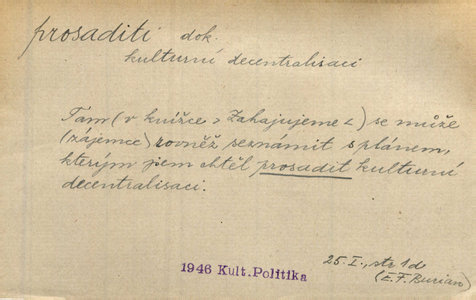 prosaditi dok.
kulturní decentralisaci
Tam (v knížce > Zahajujeme <) se může
(zájemce) rovněž seznámit s plánem,
kterým jsem chtěl prosadit kulturní
decentralisaci.
25. I., str. 1d
(E. F. Burian)
1946 Kult. Politika